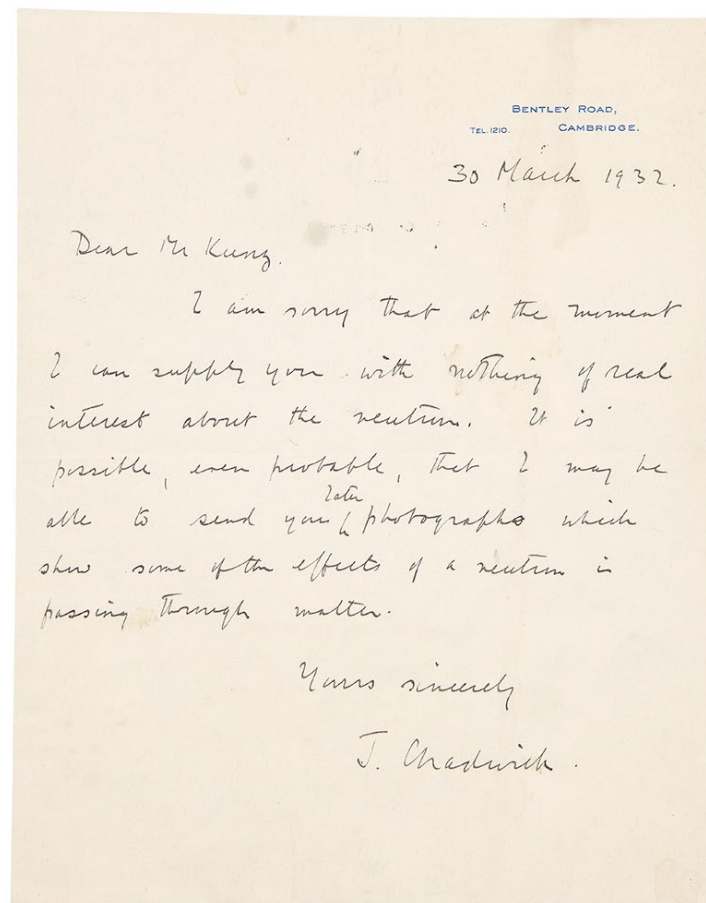 BENTLEY ROAD,
TEL. 1210. CAMBRIDGE.
30 March 1932.
Dear Mr Kunz.
I am sorry that at the moment
I can supply you with nothing of real
interest about the neutron. It is
possible, even probable, that I may be
able to send you later photographs which
show some of the effects of a neutron in
passing through matter.
Yours sincerely
J. Chadwick.